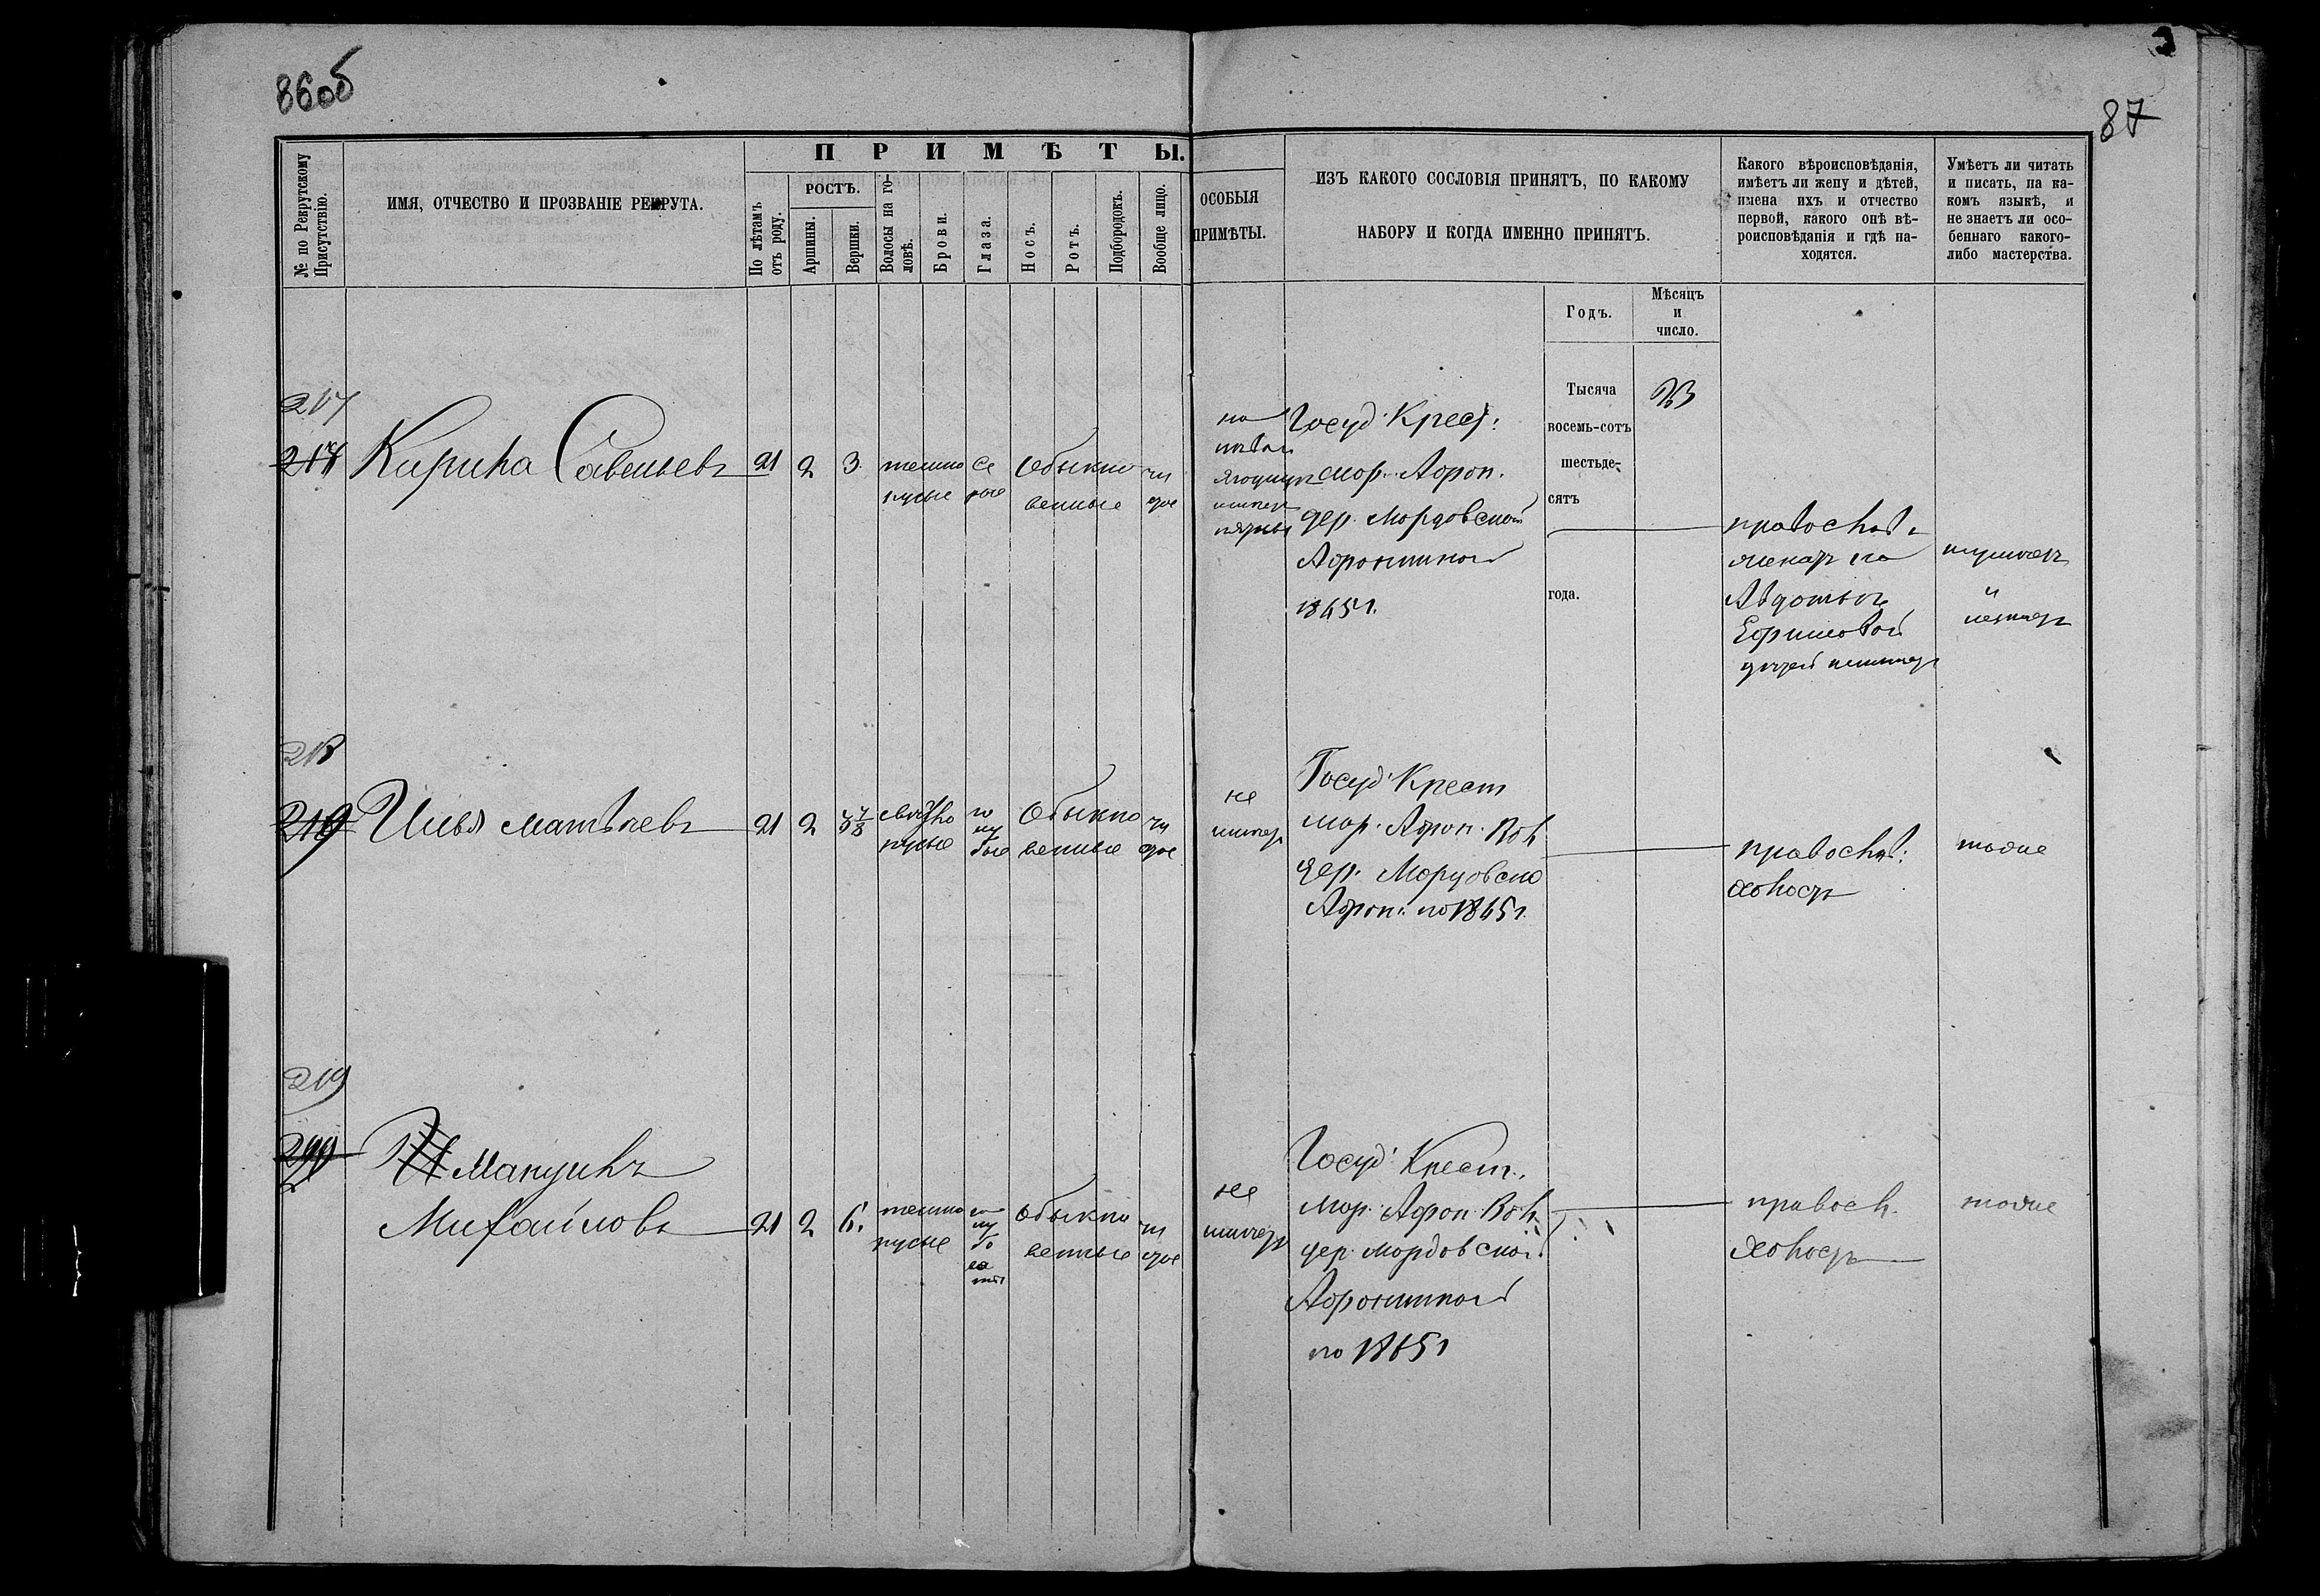 86об
87
№ по Рекрутскому Присутствію.
ИМЯ, ОТЧЕСТВО И ПРОЗВАНІЕ РЕКРУТА.
ПРИМѢТЫ.
По лѣтамъ отъ роду.
РОСТЪ.
Аршины.
Вершки.
Волосы на головѣ.
Брови.
Глаза.
Носъ.
Ротъ.
Подбородокъ.
Вообще лицо.
ОСОБЫЯ
ПРИМѢТЫ.
ИЗЪ КАКОГО СОСЛОВІЯ ПРИНЯТЪ, ПО КАКОМУ
НАБОРУ И КОГДА ИМЕННО ПРИНЯТЪ.
Какого вѣроисповѣданія,
имѣетъ ли жену и дѣтей,
имена ихъ и отчество
первой, какого онѣ вѣ-
роисповѣданія и гдѣ на-
ходятся.
Умѣетъ ли читать
и писать, на ка-
комъ языкѣ, и
не знаетъ ли осо-
беннаго какого-
либо мастерства.
Годъ.
Мѣсяцъ
и
число.
Тысяча
восемь-сотъ
шестьде-
сятъ
года.
217
Кирила Савельевъ 21 2 3 темно
русые
сѣ
рые
обыкно
венные
чи
стое
на
лѣвой
Госуд. Крест:
Мор. Афон.
дер. Мордовской
Афонькиной
1865 г.
православ.
женатъ на
Авдотьѣ
Ефимовой
дѣтей
неимѣетъ
218
219
Илья Матвѣевъ 21 2 3 7/8 свѣтло
русые
го
лу
бые
обыкно
венные
чи
стое
не
имѣетъ
Госуд. Крест
Мор. Афон. Вол.
дер. Мордовско
Афон: по 1865 г.
православ:
холостъ
тоже
219
Макидъ
Михайловъ 21 2 6. темно
русые
го
лу
бо
ва
тые
обыкно
венные
чи
стое
не
имѣетъ
Госуд. Крест.
Мор. Афон Вол.
дер. Мордовской
Афонькиной
по 1865 г
правосл.
холостъ
тоже